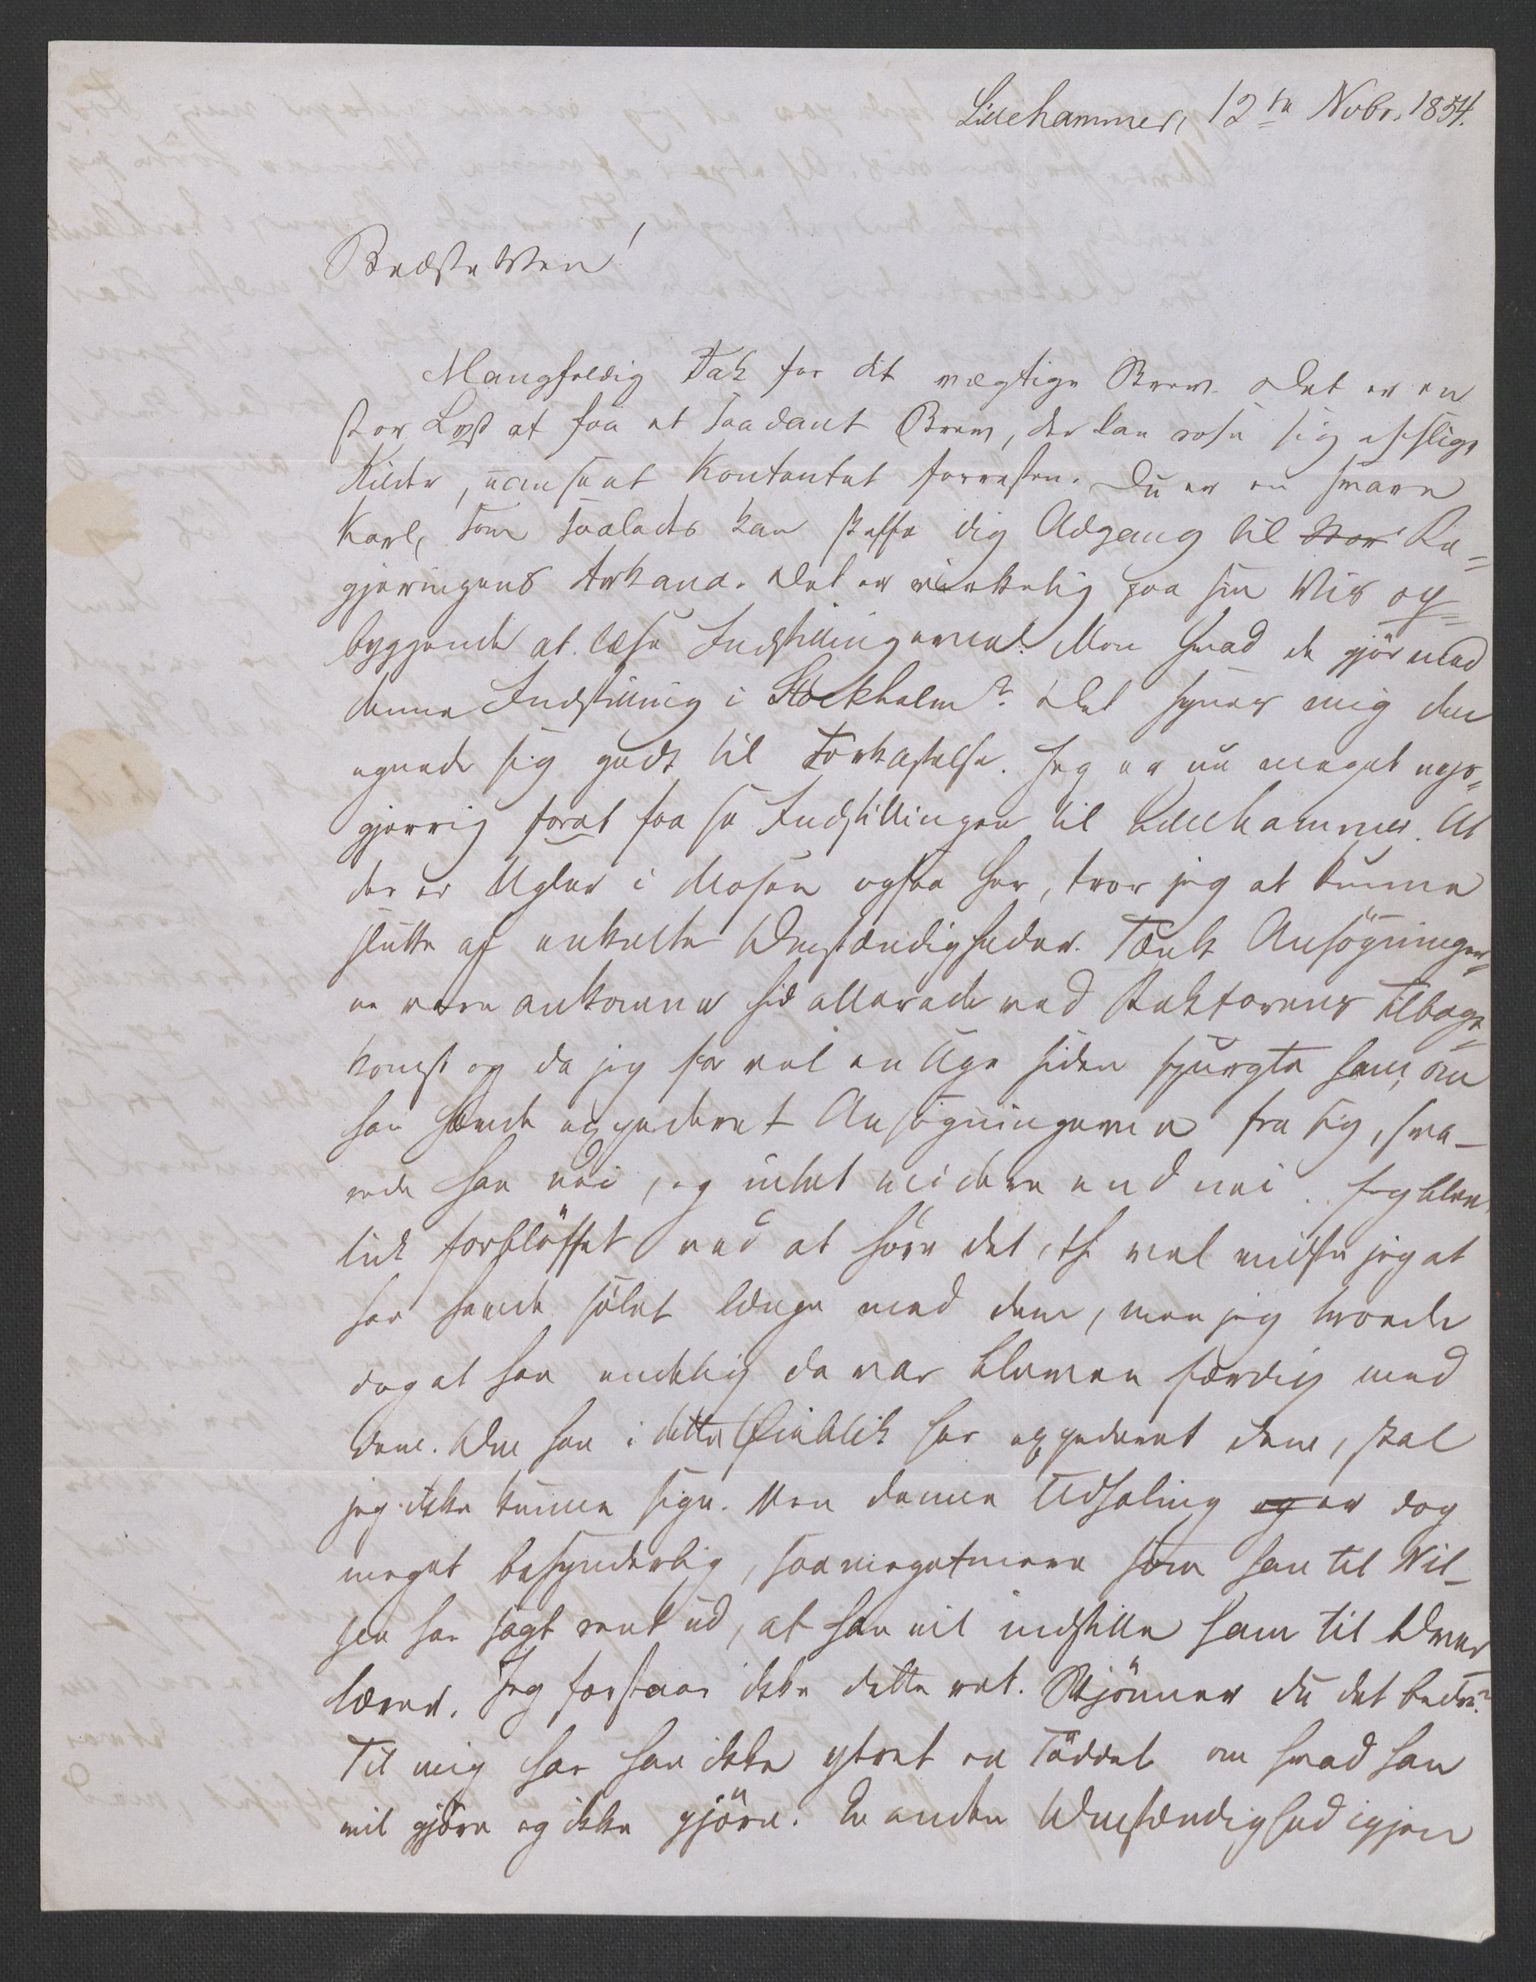 Lillehammer, 12te Nvbr. 1854.
Bedste Ven!
Mangfoldig Tak for dit vægtige Brev. Det er en
stor Lyst at faa et saadant Brev, der kan rose sig af slige
Kilder, uanseet Kontentet forresten. Du er en svare
Karl, som saaledes kan skaffe dig Adgang til Re=
gjeringens Arkana. Det er virkelig paa sin Vis op=
byggende at læse Indstillingerne. Mon hvad de gjør med
denne Indstilling i Stockholm? Det synes mig den
egnede sig godt til Forkastelse. Jeg er nu meget nys=
gjerrig forat faa se Indstillingen til Lillehammer. At
der er Ugler i Mosen ogsaa her, tror jeg at kunne
slutte af enkelte Omstændigheder. Tænk Ansøgninger=
ne vare ankomne hid allerede ved Rektorens Tilbage=
komst og da jeg for vel en Uge siden spurgte ham, om
han havde expederet Ansøgningerne fra sig, sva=
rede han nei, og intet videre end nei. Jeg blev
lidt forbløffet ved at høre det, th vel vidste jeg at
han havde sølet længe med dem, men jeg troede
dog at han endelig da var bleven færdig med
dem. Om han i dette Øieblik har expederet dem, skal
jeg ikke kunne sige. Men denne Udhaling er dog
meget besynderlig, saameget mere som han til Nil=
sen har sagt rent ud, at han vil indstille ham til Over
lærer. Jeg forstaar ikke dette ret. Skjønner du det bedre?
Til mig har han ikke ytret en Tøddel om hvad han
vil gjøre og ikke gjøre. En anden Omstændighed igjen